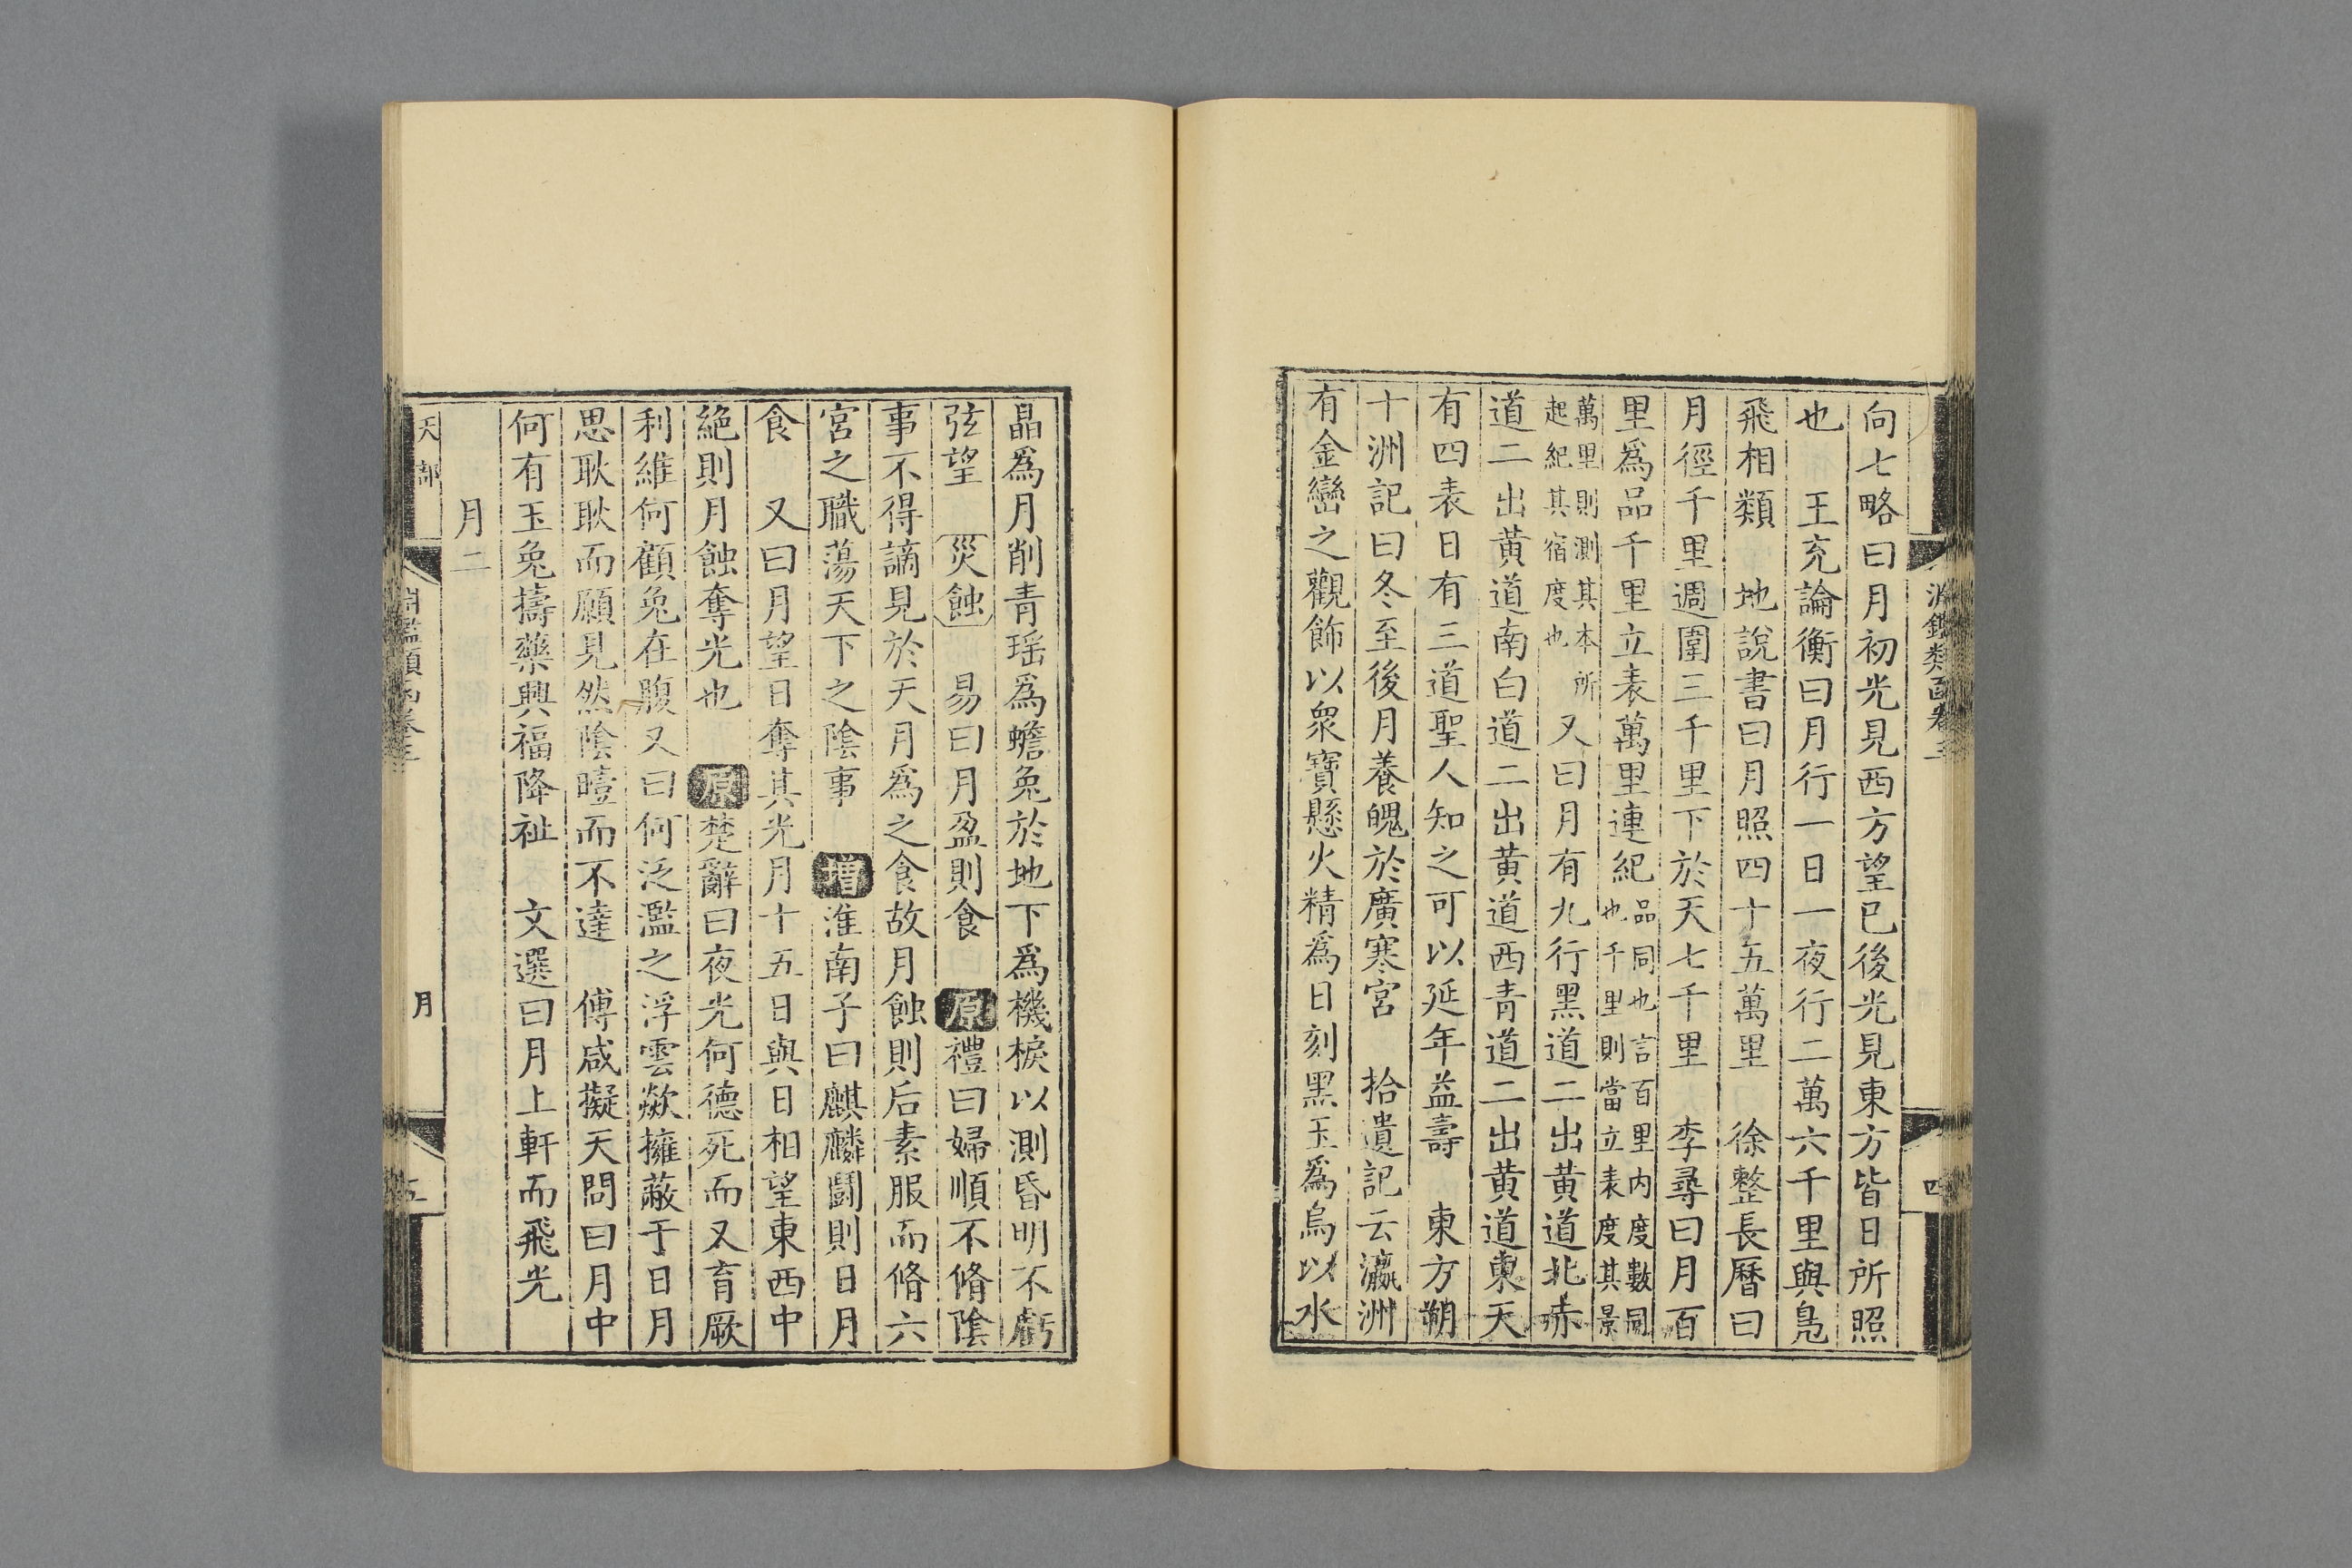 淵鑑類函卷三
四
向七略曰月初光見西方望已後光見東方皆日所照
也　王充論衡曰月行一日一夜行二萬六千里與鳧
飛相類　地說書曰月照四十五萬里　徐整長曆曰
月徑千里週圍三千里下於天七千里　李尋曰月百
里爲品千里立表萬里連紀品同也言百里内度數同也千里則當立表度其景
萬里則測其本所起紀其宿度也　又曰月有九行黑道二出黄道北赤
道二出黄道南白道二出黄道西青道二出黄道東天
有四表日有三道聖人知之可以延年益壽　東方朔
十洲記曰冬至後月養魄於廣寒宮　拾遺記云瀛洲
有金巒之觀飾以衆寶懸火精爲日刻黑玉爲烏以水
晶爲月削青瑶爲蟾兔於地下爲機棙以測昏明不虧
弦望　災蝕　易曰月盈則食　原禮曰婦順不脩陰
事不得謫見於天月爲之食故月蝕則后素服而脩六
宮之職蕩天下之陰事　增淮南子曰麒麟鬭則日月
食　又曰月望日奪其光月十五日與日相望東西中
絕則月蝕奪光也　原楚辭曰夜光何德死而又育厥
利維何顧兔在腹又曰何泛濫之浮雲歘擁蔽于日月
思耿耿而願見然陰曀而不達　傅咸擬天問曰月中
何有玉兔擣藥興福降祉　文選曰月上軒而飛光
月二
天部
淵鑑類函卷三
月
五